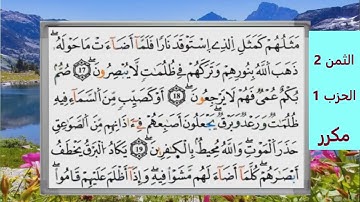 مَثَلُهُمْ كَمَثَلِ اِلذِے اِسْتَوْقَدَ نَارًا فَلَمَّآ أَضَآءَتْ مَا حَوْلَهُۥ
ذَهَبَ اَللَّهُ بِنُورِهِمْ وَتَرَكَهُمْ فِے ظُلُمَٰتٍ لَّا يُبْصِرُونَ 17 صُمُّۢ
بُكْمٌ عُمْيٌ فَهُمْ لَا يَرْجِعُونَ 18 أَوْ كَصَيِّبٍ مِّنَ اَلسَّمَآءِ فِيهِ
ظُلُمَٰتٌ وَرَعْدٌ وَبَرْقٌ يَجْعَلُونَ أَصَٰبِعَهُمْ فِےٓ ءَاذَانِهِم مِّنَ اَلصَّوَٰعِقِ
حَذَرَ اَلْمَوْتِ وَاللَّهُ مُحِيطٌۢ بِالْكٰ۪فِرِينَ 19 يَكَادُ اُلْبَرْقُ يَخْطَفُ
أَبْصَٰرَهُمْ كُلَّمَآ أَضَآءَ لَهُم مَّشَوْاْ فِيهِ وَإِذَآ أَظْلَمَ عَلَيْهِمْ قَامُواْ
الثمن 2
الحزب 1
مكرر